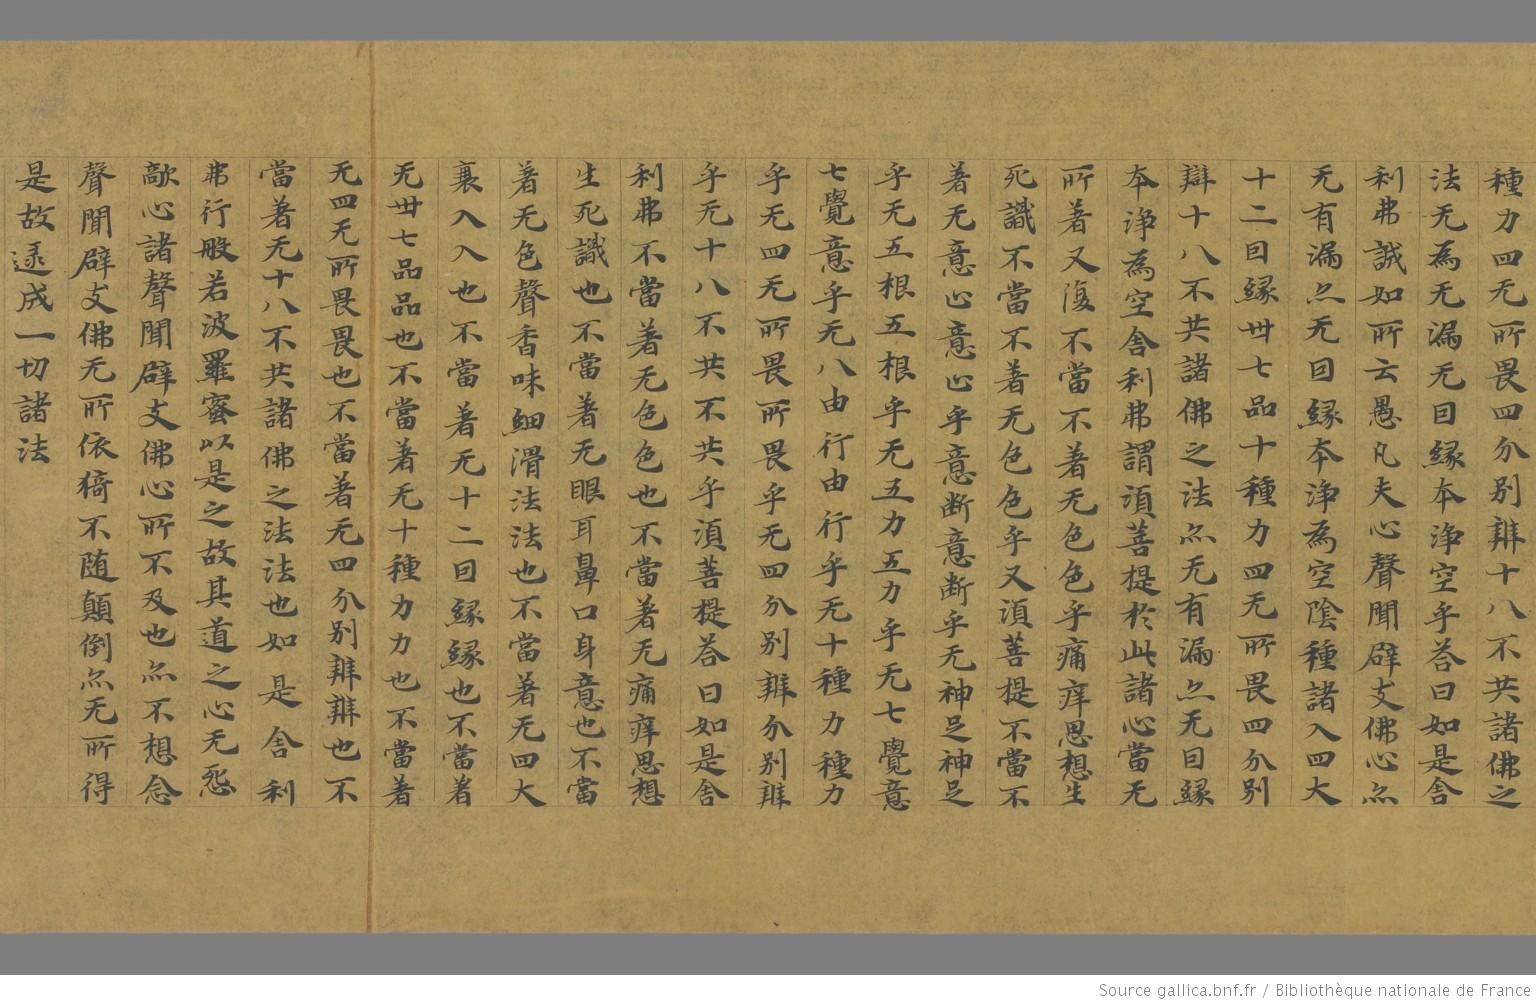 種力四无所畏四分別辯十八不共諸佛之
法无為无漏无因緣本淨空乎荅曰如是舍
利弗誠如所云愚凡夫心聲聞辟支佛心亦
无有漏亦无因緣本淨為空陰種諸入四大
十二因緣卅七品十種力四无所畏四分別
辯十八不共諸佛之法亦无有漏亦无因緣
本淨為空舍利弗謂湏菩提於此諸心當无
所著又復不當不著无色色乎痛痒思想生
死識不當不著无色色乎又湏菩提不當不
著无意止意止乎意断意断乎无神足神足
乎无五根五根乎无五力五力乎无七覺意
七覺意乎无八由行由行乎无十種力種力
乎无四无所畏所畏乎无四分別辯分別辯
乎无十八不共不共乎湏菩提荅曰如是舍
利弗不當著无色色也不當著无痛痒思想
生死識也不當著无眼耳鼻口身意也不當
著无色聲香味細滑法法也不當著无四大
衰入入也不當著无十二因緣緣也不當著
无卅七品品也不當著无十種力力也不當著
无四无所畏畏也不當著无四分別辯辯也不
當著无十八不共諸佛之法法也如是舍利
弗行般若波羅蜜以是之故其道之心无怨
敵心諸聲聞辟支佛心所不及也亦不想念
聲聞辟支佛无所依猗不随顛倒亦无所得
是故逮成一切諸法
Source gallica.bnf.fr / Bibliothèque nationale de France